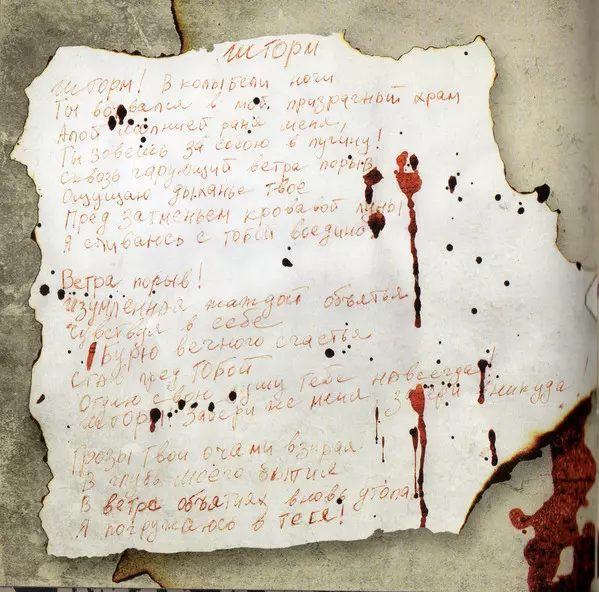 Шторм
Шторм! В колыбели ночи
Ты ворвался в мой призрачный храм
Алой молнией раня меня,
Ты зовёшь за собою в пучину!
Сквозь чарующий ветра порыв
Ощущаю дыханье твоё
Пред затменьем кровавой луны
Я сливаюсь с тобой воедино
Ветра порыв!
Изумлённая жаждой объятья
Чувствуя в себе
Бурю вечного счастья
Стоя пред Тобой
Отдаю свою душу Тебе навсегда!
Забери же меня в никуда
Грозы Твои очами взирая
В глубь моего бытия
В ветра объятиях вновь утопая
Я погружаюсь в Тебя!